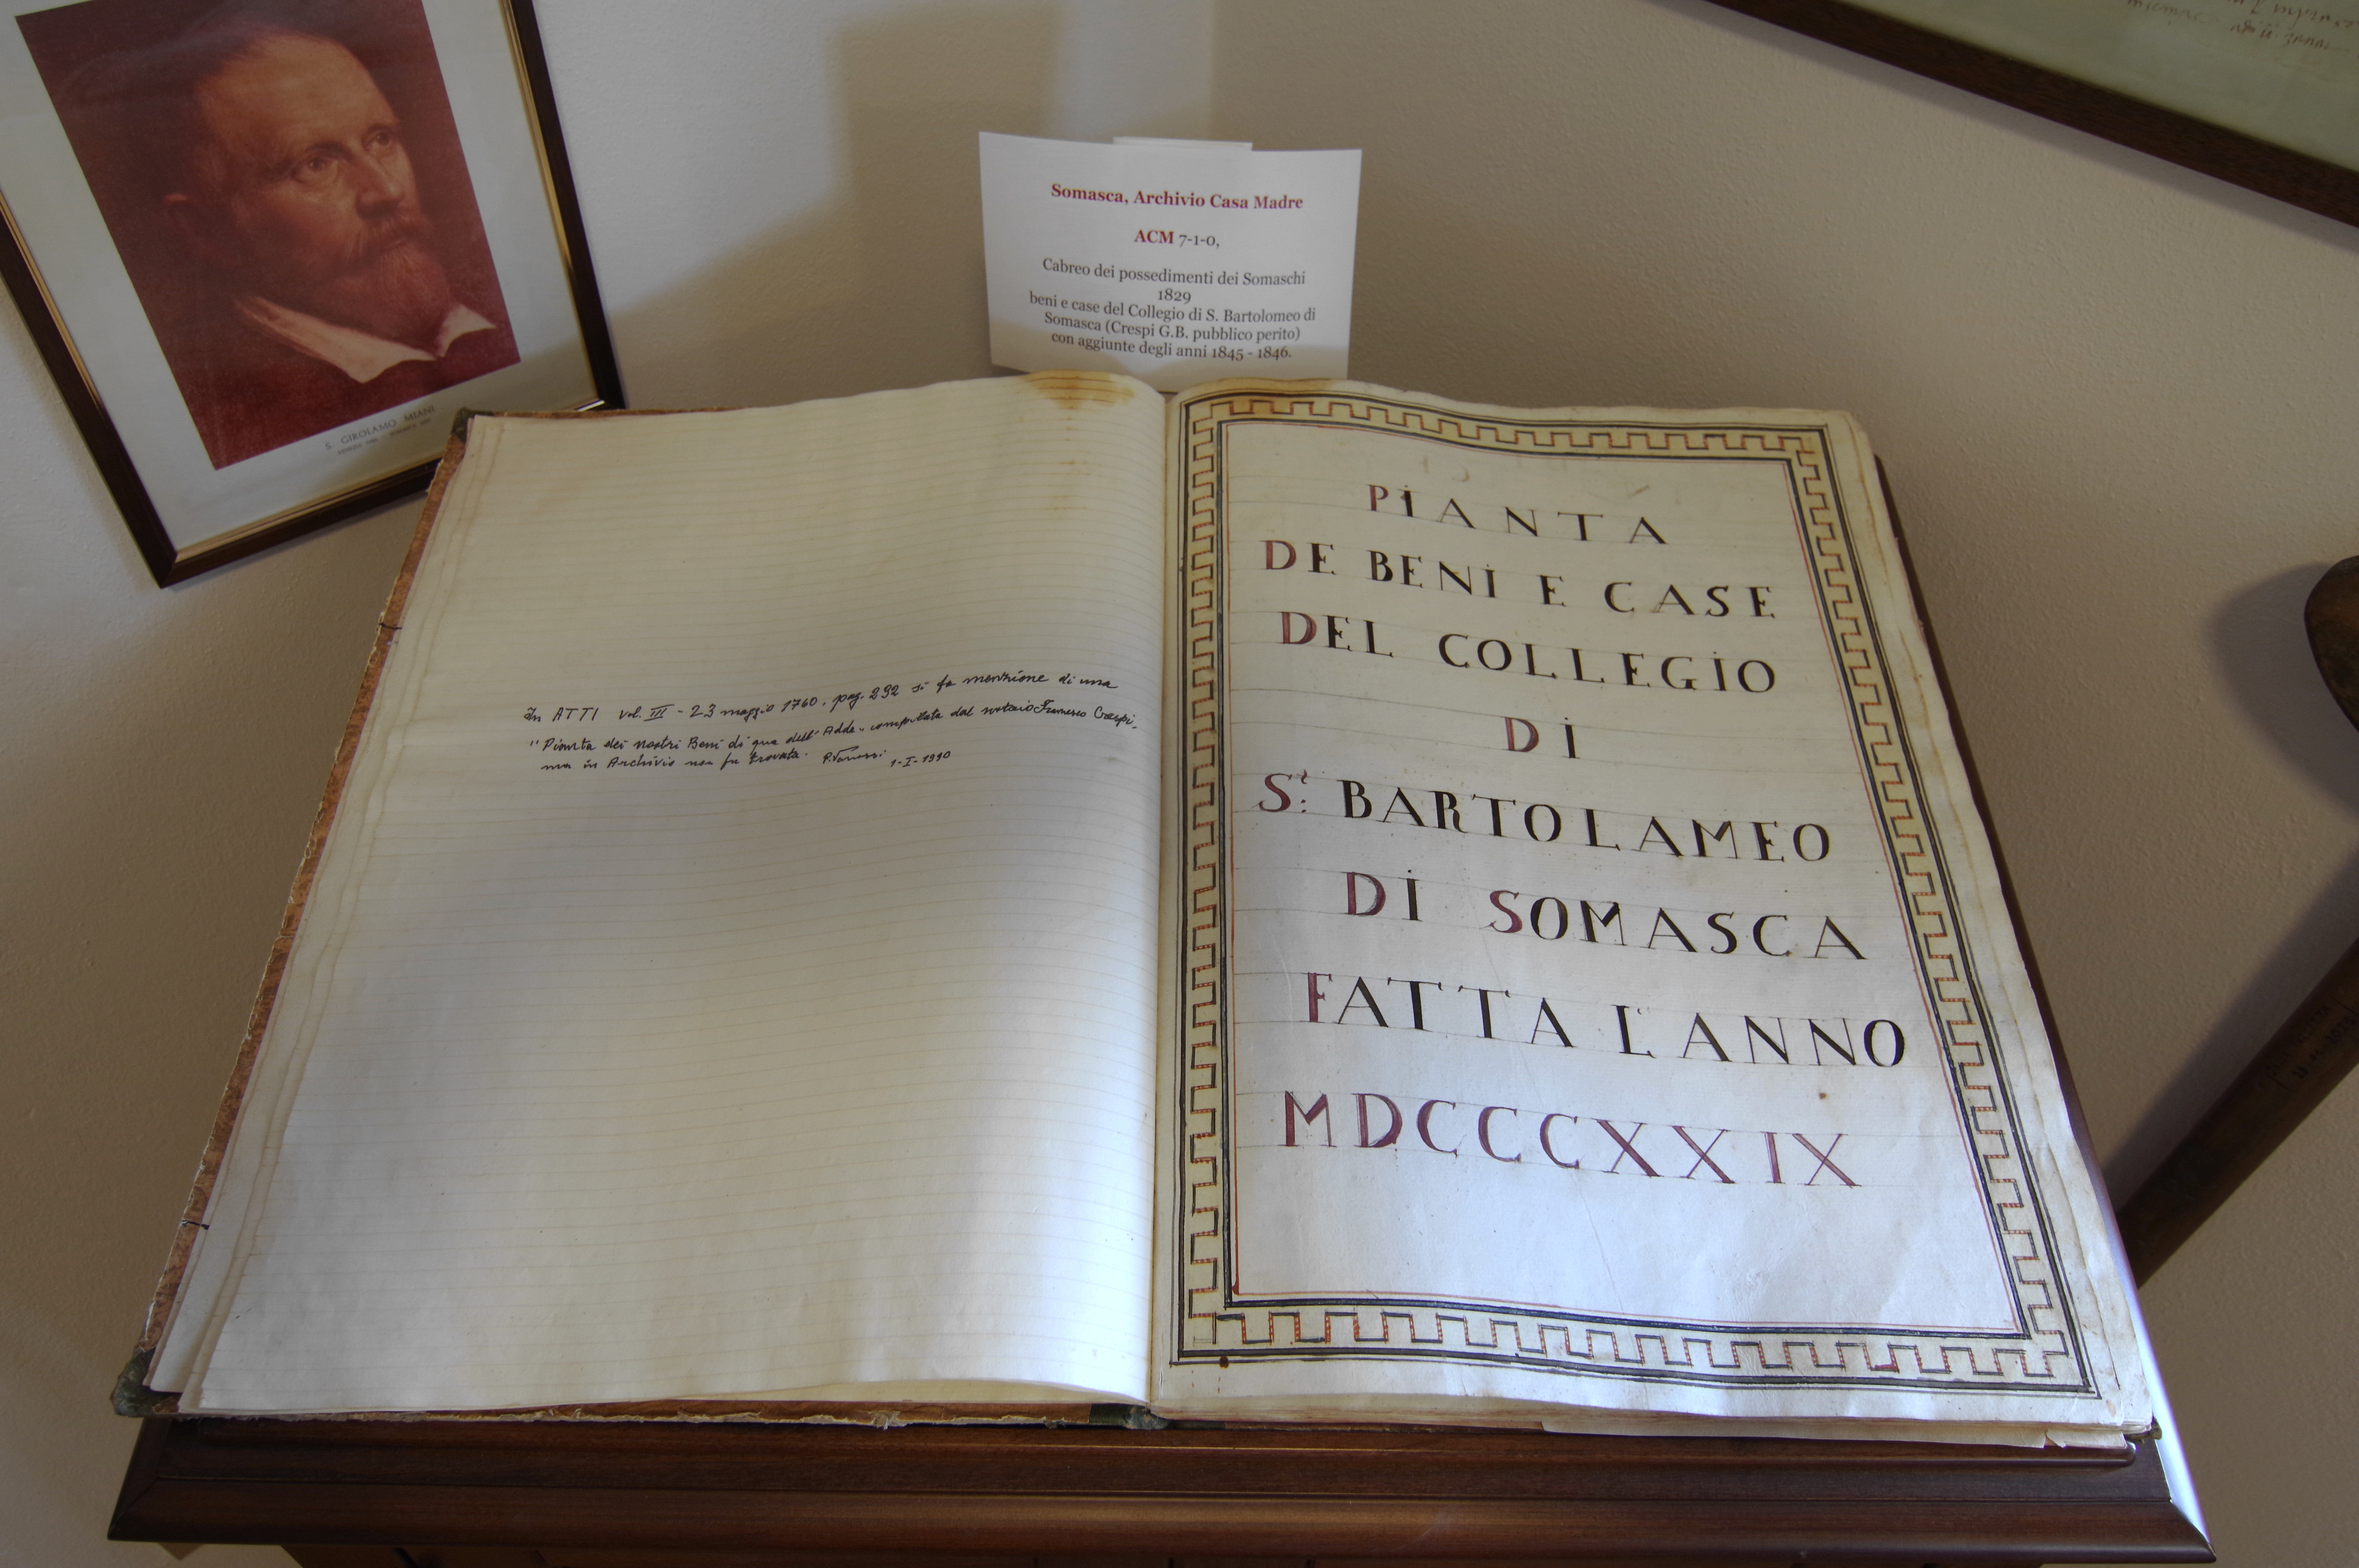 S. GIROLAMO MIANI
Somasca, Archivio Casa Madre
ACM 7-1-0,
Cabreo dei possedimenti dei Somaschi
1829
beni e case del Collegio di S. Bartolomeo di
Somasca (Crespi G.B. pubblico perito)
con aggiunte degli anni 1845 - 1846.
In ATTI vol. III - 23 maggio 1760, pag. 292 si fa menzione di una
"Pianta dei nostri Beni di qua dell'Adda" compilata dal notaio Francesco Crespi,
ma in Archivio non fu trovata. 1-I-1990
PIANTA
DE BENI E CASE
DEL COLLEGIO
DI
S: BARTOLAMEO
DI SOMASCA
FATTA L'ANNO
MDCCCXXIX